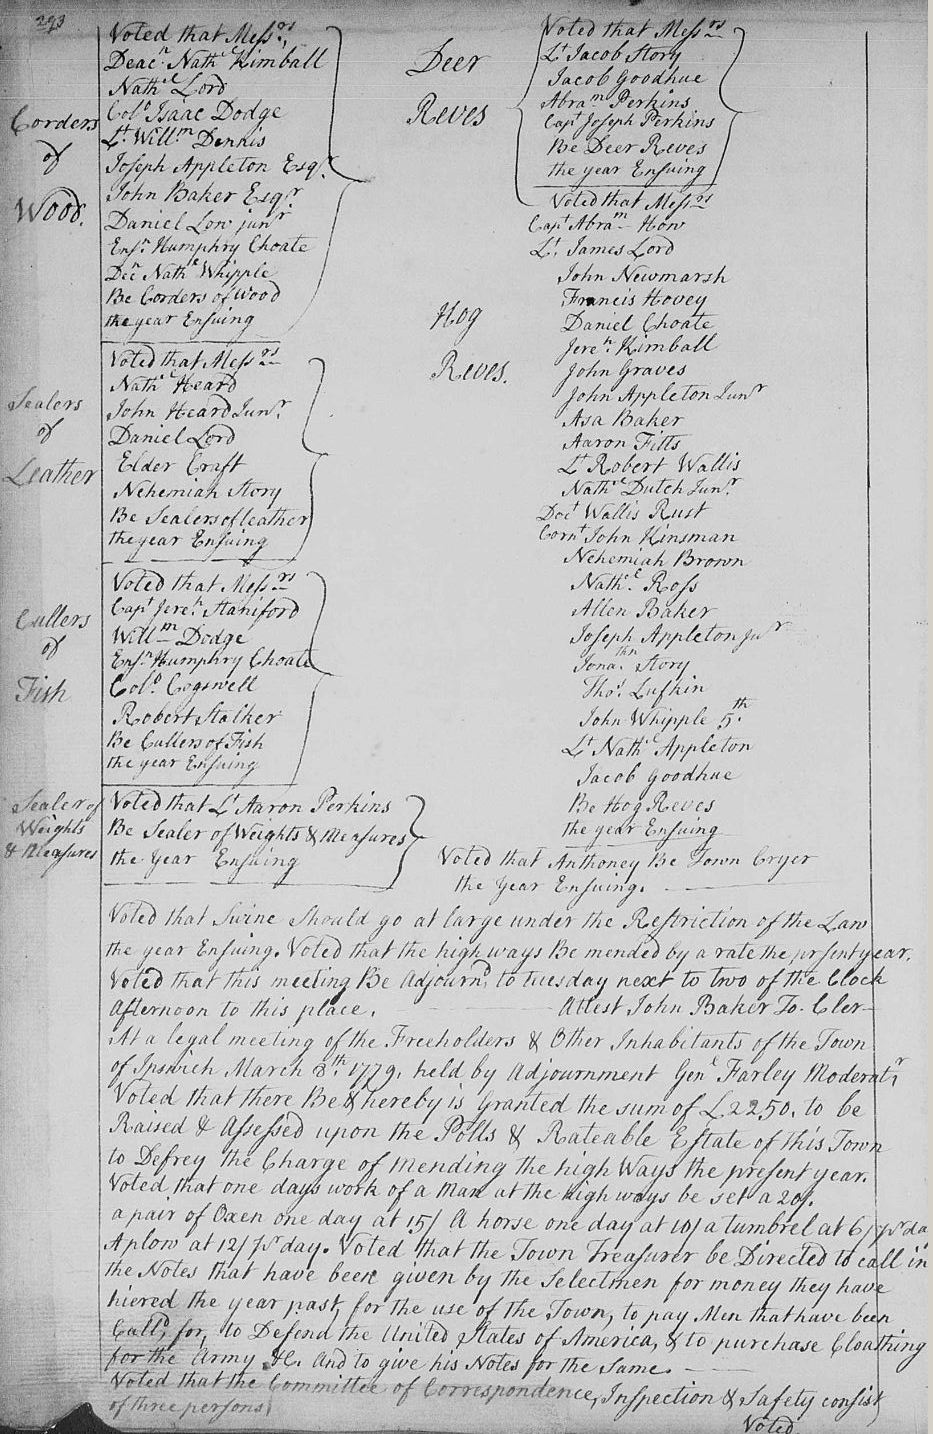 293
Corders
of
Wood.
Voted that Messrs,
Deacn. Nathl Kimball
Nathl Lord
Colo Isaac Dodge
Lt. Willm Dennis
Joseph Appleton Esqr.
John Baker Esqr
Daniel Low junr
Ensn Humphry Choate
Decn Nathl Whipple
Be Corders of Wood
the year Ensuing
Sealers
of
Leather
Voted that Messrs
Nathl Heard
John Heard Junr.
Daniel Lord
Elder Craft
Nehemiah Story
Be Sealers of leather
the year Ensuing
Cullers
of
Fish
Voted that Messrs
Capt Jeren. Staniford
Willm Dodge
Ensn Humphry Choate
Colo. Cogswell
Robert Stalker
Be Cullers of Fish
the year Ensuing
Sealer of
Weights
& Measures
Voted that Lt Aaron Perkins
Be Sealer of Weights & Measures
the Year Ensuing
Deer
Reves
Voted that Messrs
Lt Jacob Story
Jacob Goodhue
Abram Perkins
Capt Joseph Perkins
Be Deer Reves
the year Ensuing
Hog
Reves.
Voted that Messrs
Capt Abram How
Lt. James Lord
John Newmarsh
Francis Hovey
Daniel Choate
Jeren. Kimball
John Graves
John Appleton Junr
Asa Baker
Aaron Fitts
Lt Robert Wallis
Nathl Dutch Junr.
Doct Wallis Rust
Cornt John Kinsman
Nehemiah Brown
Nathl. Ross
Allen Baker
Joseph Appleton Junr
Jonathn. Story
Thos. Lufkin
John Whipple 5th.
Lt Nathl Appleton
Jacob Goodhue
Be Hog Reves
the year Ensuing
Voted that Anthoney Be Town Cryer
the Year Ensuing.
Voted that Swine Should go at large under the Restriction of the Law
the year Ensuing. Voted that the highways Be mended by a rate the prsent year.
Voted that this meeting Be Adjournd, to tuesday next to two of the Clock
Afternoon to this place. Attest John Baker To. Cler
At a legal meeting of the Freeholders & Other Inhabitants of the Town
of Ipswich March 8th. 1779. held by Adjournment Genl Farley Moderatr
Voted that there Be & hereby is Granted the sum of £2250. to be
Raised & Assessed upon the Polls & Rateable Estate of this Town
to Defrey the Charge of mending the high Ways the present year.
Voted that one days work of a Man at the high ways be set a 20/.
a pair of Oxen one day at 15/ A horse one day at 10/ a tumbrel at 6/ pr da
A plow at 12/ pr day. Voted that the Town Treasurer be Directed to call in
the Notes that have been given by the Selectmen for money they have
hiered the year past, for the use of the Town, to pay Men that have been
Calld, for, to Defend the United States of America, & to purchase Cloathing
for the Army &c. And to give his Notes for the Same.
Voted that the Committee of Correspondence, Inspection & Safety consist
of three persons
Voted